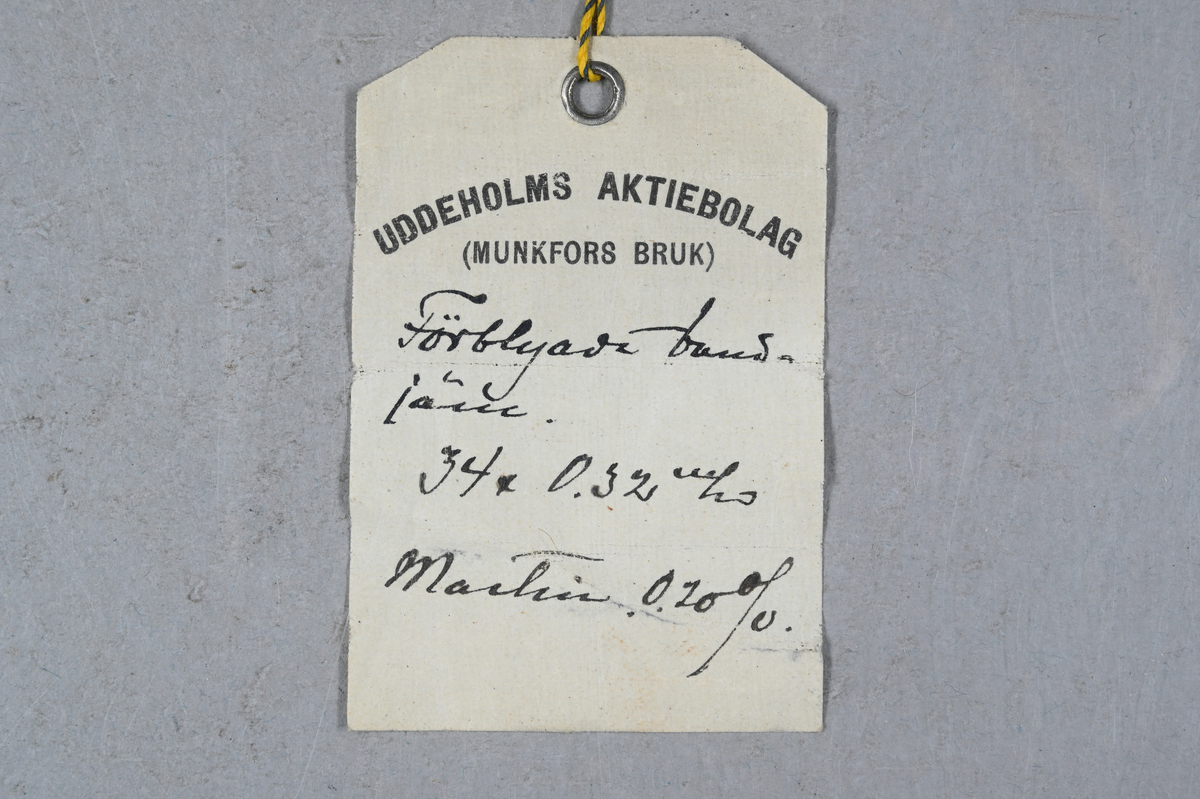 UDDEHOLMS AKTIEBOLAG
(MUNKFORS BRUK)
Förblyade band-
järn.
34 x 0.32 m/m
Martin 0.20 %.